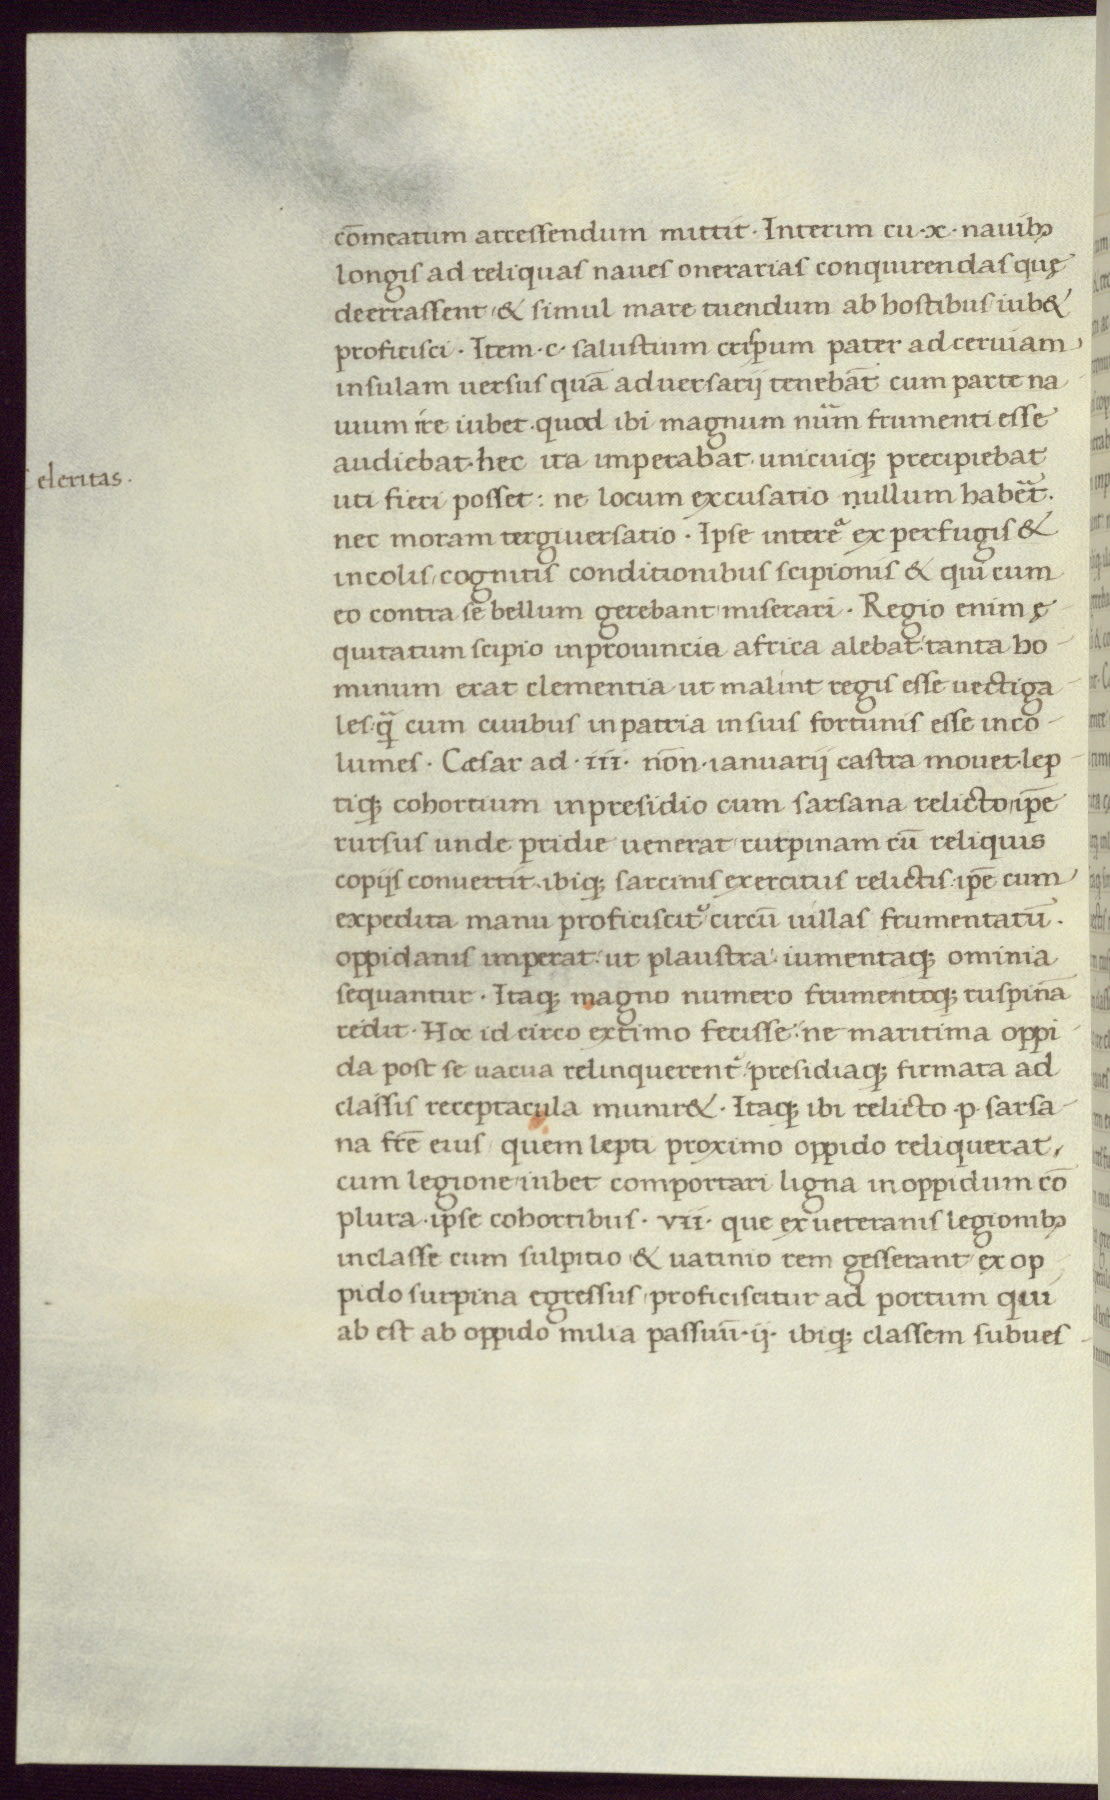 cōmeatum arcessendum mittit · Interim cu · x · nauibꝫ
longis ad reliquas naues onerarias conquirendas quę
deerrassent / & simul mare tuendum ab hostibus iub&
proficisci · Item · c · salustium crispum pater ad ceruiam
insulam uersus quā aduersarij tenebāt cum parte na
uium ire iubet · quod ibi magnum nūm frumenti esse
audiebat · hec ita imperabat · unicuiqꝫ precipiebat
eleritas ·
uti fieri posset : ne locum excusatio nullum habēt ·
nec moram tergiuersatio · Ipse intereᵃ ex perfugis &
incolis / cognitis conditionibus scipionis & qui cum
eo contra se bellum gerebant miserari · Regio enim ę
quitatum scipio in prouincia africa alebat · tanta ho
minum erat clementia ut malint regis esse uectiga
les · q̄ cum ciuibus in patria in suis fortunis esse inco
lumes · Cæsar ad · iii · nōn · ianuarij castra mouet · lep
tiqꝫ cohortium in presidio cum sarsana relicto / ip̄e
rursus unde pridie uenerat rurpinam cū reliquis
copijs conuertit · ibiqꝫ sarcinis exercitus relictis · ip̄e cum
expedita manu proficiscitᷣ circū uillas frumentatū ·
oppidanis imperat · ut plaustra · iumentaqꝫ ominia
sequantur · Itaqꝫ magno numero frumentoqꝫ ruspinā
redit · Hoc id circo extimo fecisse · ne maritima oppi
da post se uacua relinquerentᷣ · presidiaqꝫ firmata ad
classis receptacula munir& · Itaqꝫ ibi relicto · p · sarsa
na fr̄e eius / quem lepti proximo oppido reliquerat /
cum legione / iubet comportari ligna in oppidum cō
plura · ipse cohortibus · vii · que ex ueteranis legionibꝫ
in classe cum sulpitio & uatinio rem gesserant ex op
pido surpina egressus / proficiscitur ad portum qui
ab est ab oppido milia passuū · ij · ibiqꝫ classem subues